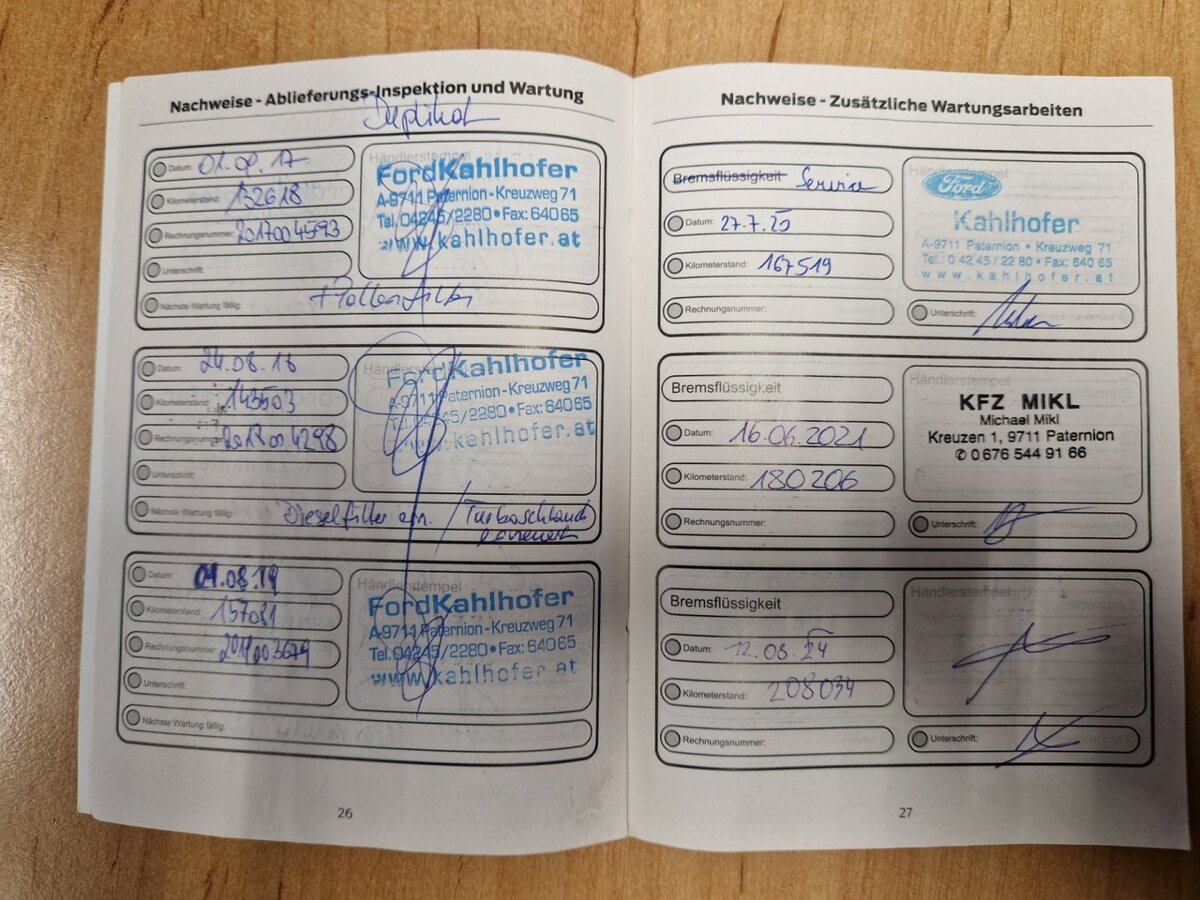 Nachweise - Ablieferungs-Inspektion und Wartung
Duplikat
Datum: 01.08.17
Händlerstempel
Kilometerstand: 132618
Rechnungsnummer: 2017004593
Unterschrift:
Nächste Wartung fällig: + Pollenfilter
FordKahlhofer
A-9711 Paternion - Kreuzweg 71
Tel. 04245/2280 • Fax: 640 65
www.kahlhofer.at
Datum: 24.08.18
Händlerstempel
Kilometerstand: 143503
Rechnungsnummer: 2018004298
Unterschrift:
Nächste Wartung fällig: Dieselfilter ern. / Turboschlauch
erneuert
FordKahlhofer
A-9711 Paternion - Kreuzweg 71
Tel. 04245/2280 • Fax: 640 65
www.kahlhofer.at
Datum: 01.08.19
Händlerstempel
Kilometerstand: 157081
Rechnungsnummer: 2019003679
Unterschrift:
Nächste Wartung fällig:
FordKahlhofer
A-9711 Paternion - Kreuzweg 71
Tel. 04245/2280 • Fax: 640 65
www.kahlhofer.at
26
Nachweise - Zusätzliche Wartungsarbeiten
Bremsflüssigkeit Service
Datum: 27.7.20
Kilometerstand: 167519
Rechnungsnummer:
Ford
Kahlhofer
A-9711 Paternion • Kreuzweg 71
Tel.: 0 42 45 / 22 80 • Fax: 640 65
www.kahlhofer.at
Unterschrift:
Bremsflüssigkeit
Datum: 16.06.2021
Kilometerstand: 180206
Rechnungsnummer:
Händlerstempel
KFZ MIKL
Michael Mikl
Kreuzen 1, 9711 Paternion
✆ 0 676 544 91 66
Unterschrift:
Bremsflüssigkeit
Datum: 12.03.24
Kilometerstand: 208034
Rechnungsnummer:
Händlerstempel
Unterschrift:
27